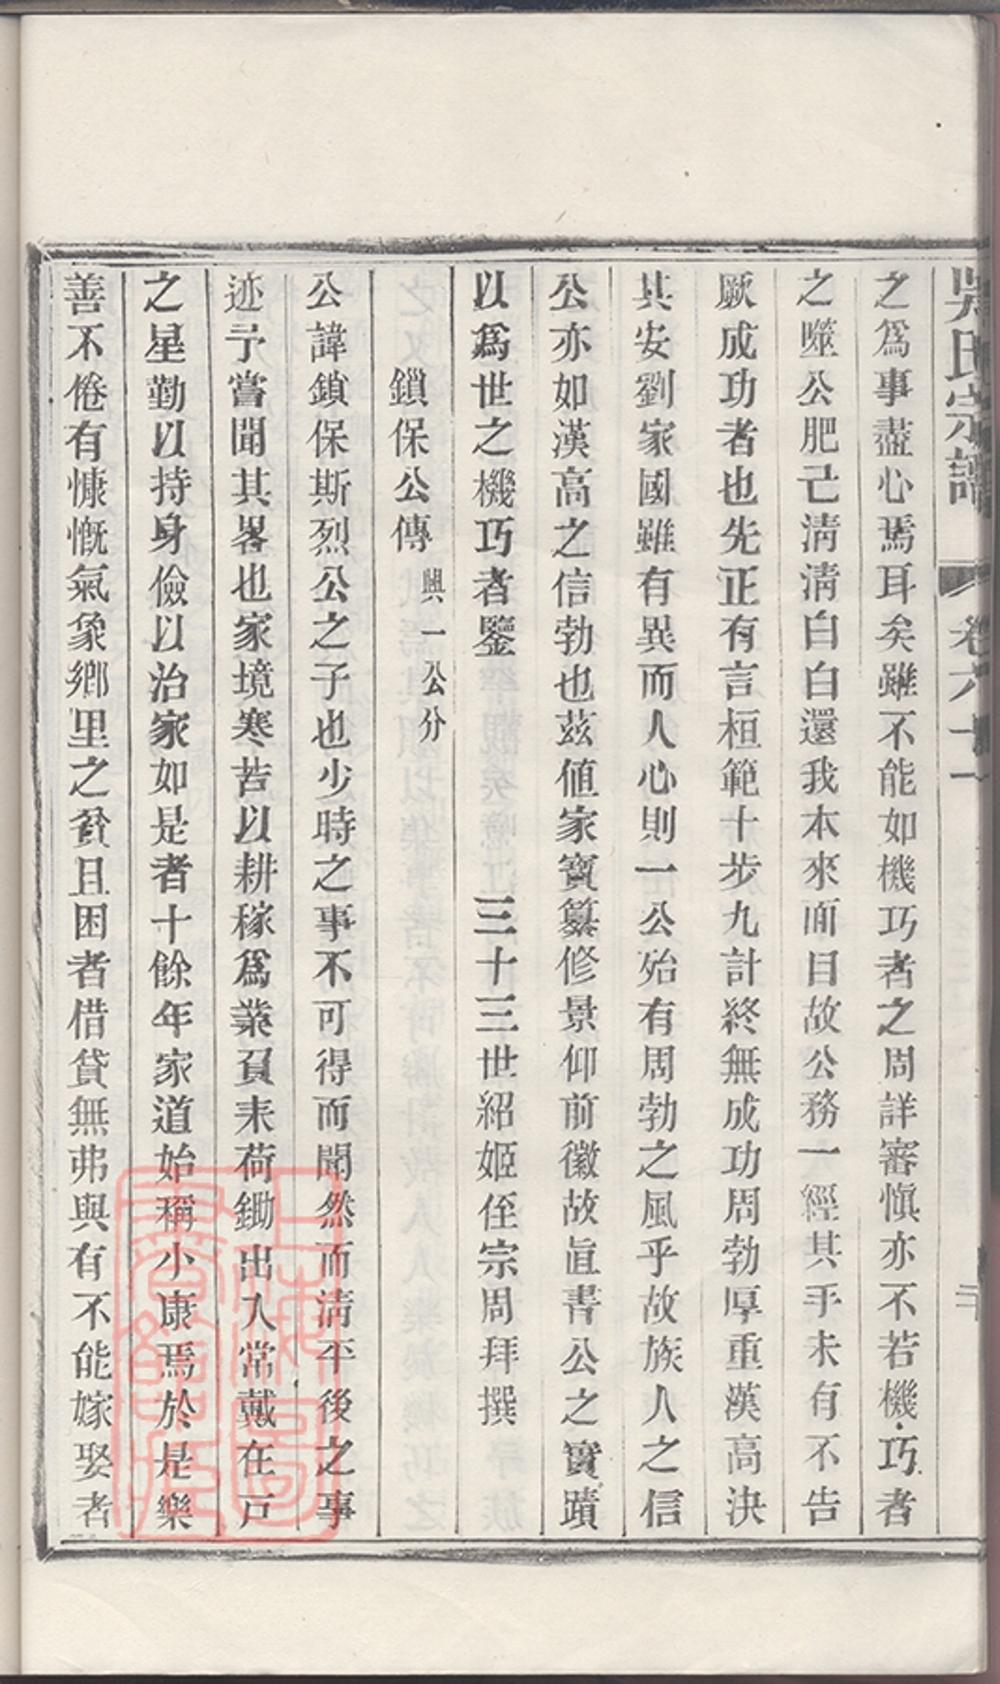 吳氏宗譜 卷六十一
之爲事盡心焉耳矣雖不能如機巧者之周詳審愼亦不若機巧者
之噬公肥己淸淸白白還我本來面目故公務一經其手未有不告
厥成功者也先正有言桓範十步九計終無成功周勃厚重漢高決
其安劉家國雖有異而人心則一公殆有周勃之風乎故族人之信
公亦如漢高之信勃也茲值家寶纂修景仰前徽故直書公之實蹟
以爲世之機巧者鑒 三十三世紹姬侄宗周拜撰
鎖保公傳 興一公分
公諱鎖保斯烈公之子也少時之事不可得而聞然而淸平後之事
迹予嘗聞其畧也家境寒苦以耕稼爲業負耒荷鋤出入常戴在戶
之星勤以持身儉以治家如是者十餘年家道始稱小康焉於是樂
善不倦有慷慨氣象鄉里之貧且困者借貸無弗與有不能嫁娶者
上海圖書館藏